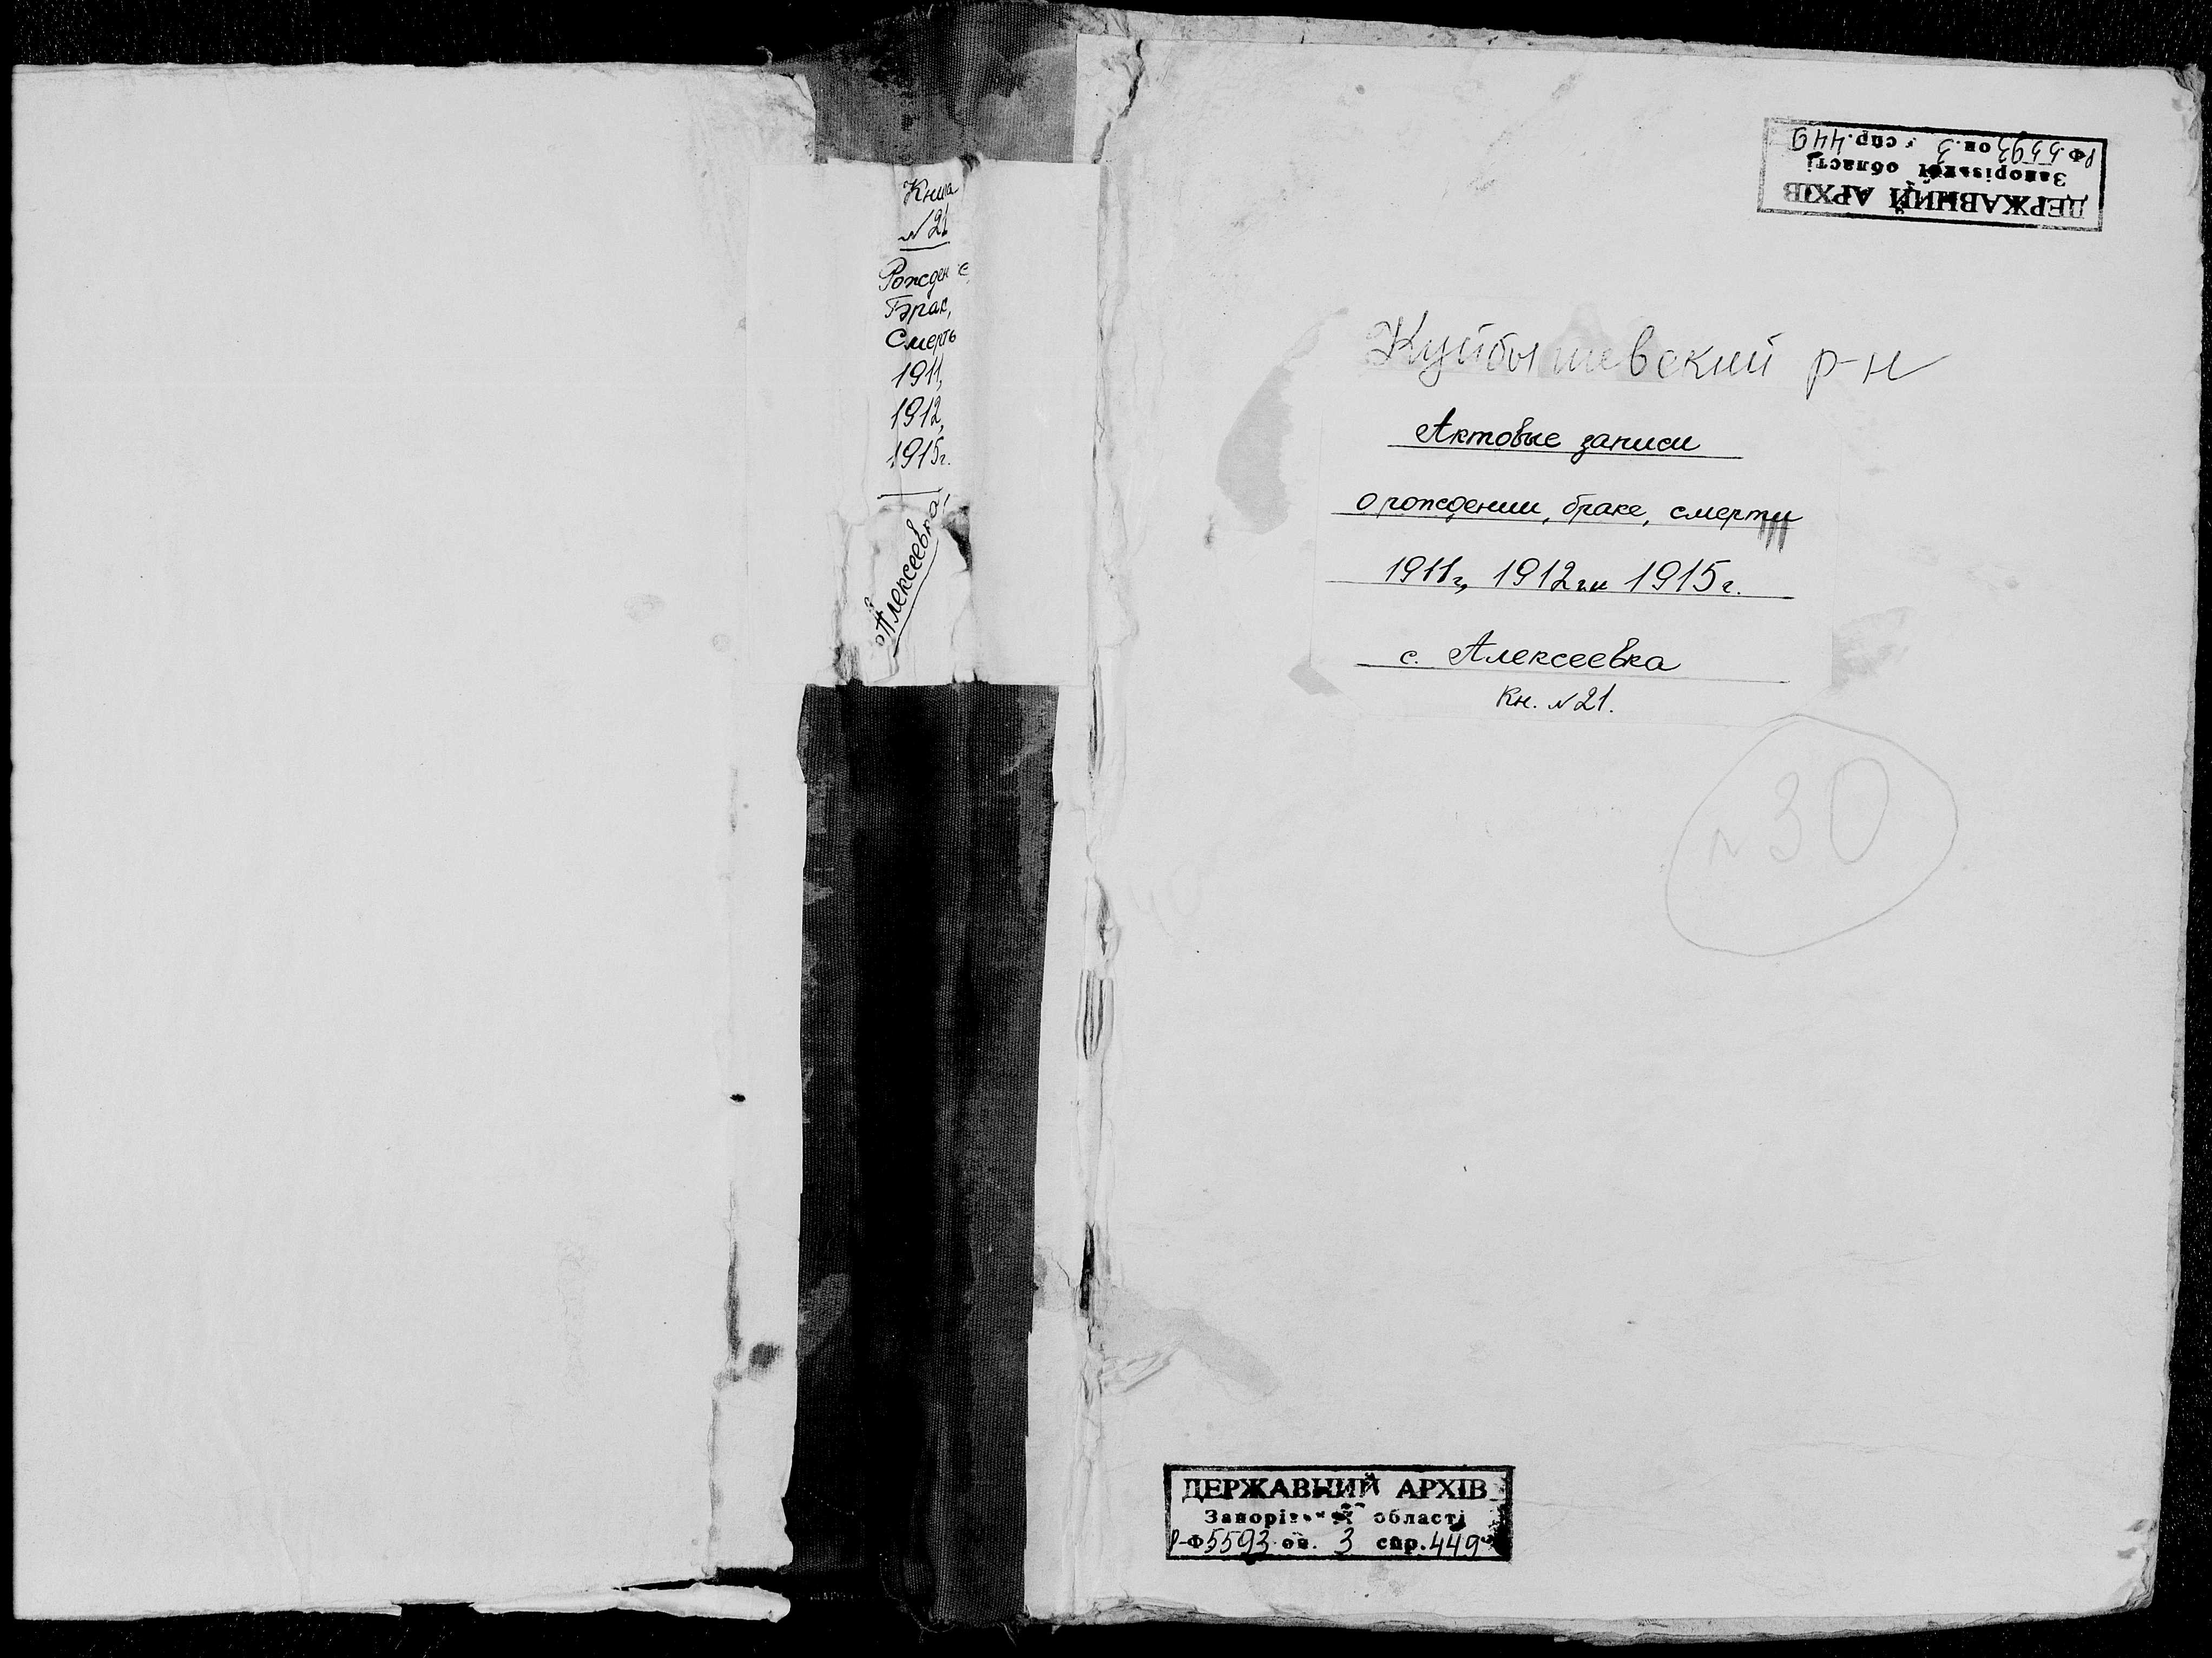 Книга
№ 21
Рождение
Брак,
Смерть
1911,
1912,
1915г.
Алексеевка
ДЕРЖАВНИЙ АРХІВ
Запорізької області
Р-Ф.5593 оп. 3 спр. 449
Куйбышевский р-н
Актовые записи
о рождении, браке, смерти
1911г, 1912г и 1915г.
с. Алексеевка
Кн. № 21.
№ 30
ДЕРЖАВНИЙ АРХІВ
Запорізької області
Р-Ф 5593 оп. 3 спр. 449